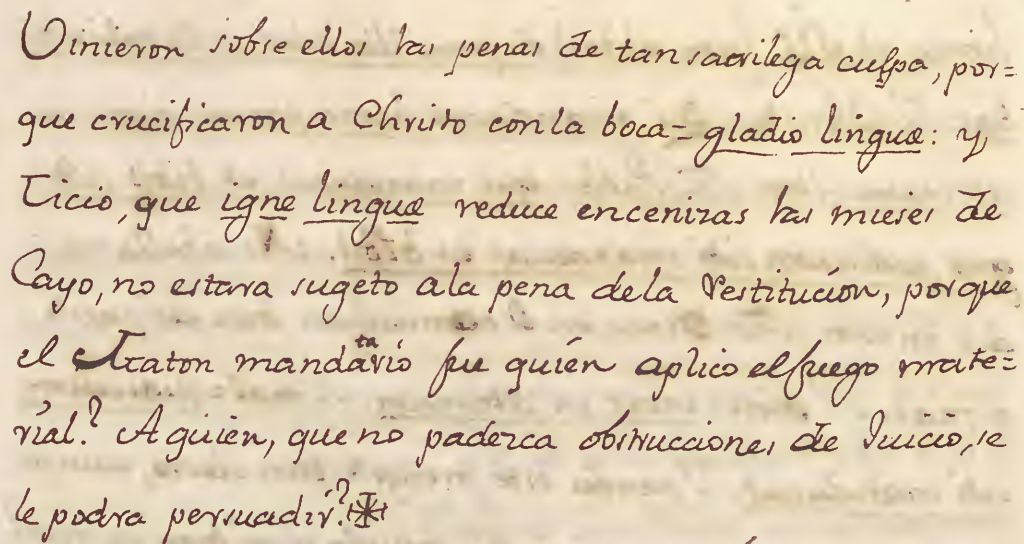 Vinieron sobre ellos las penas de tan sacrilega culpa, por=
que crucificaron a Christo con la boca= gladio linguæ: y
Ticio, que igne linguæ reduce encenizas las mieses de
Cayo, no estara sugeto ala pena dela Restitución, porque
el mandatario fue quién aplico el fuego mate=
rial? A quién, que no padezca obstrucciones de Juicio, se
le podra persuadir?